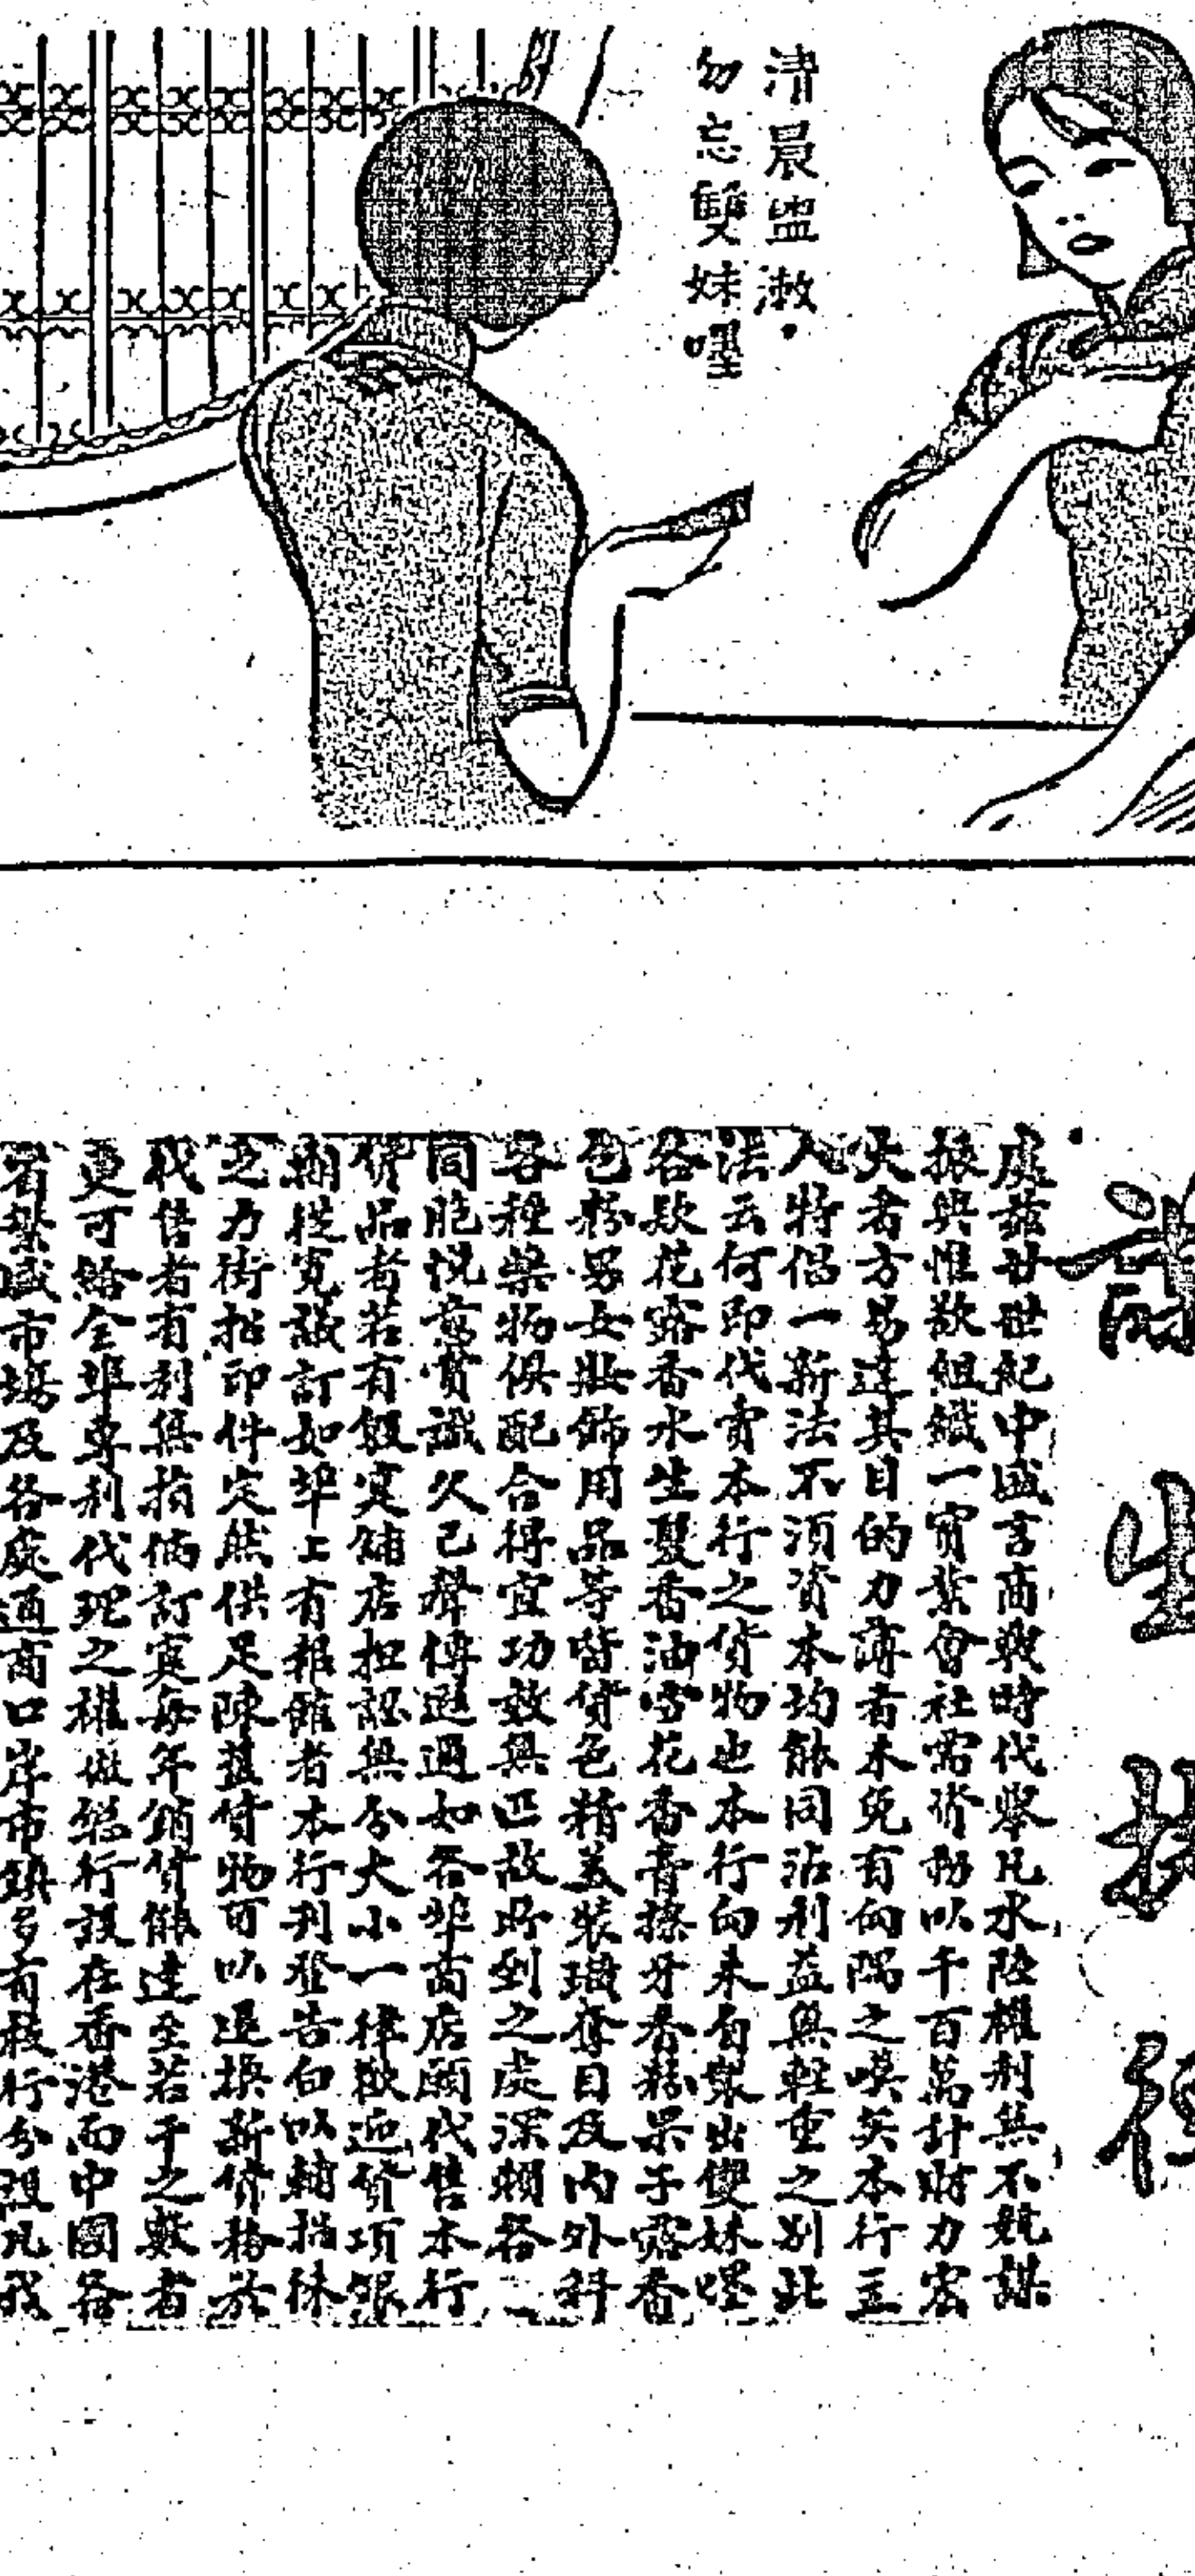 清晨盥漱·
勿忘雙妹嚜
處茲廿世紀中盛言商戰時代舉凡水陸權利無不競謀
振興惟欲組織一實業會社需資動以千百萬計財力宏
大者方易達其目的力薄者未免有向隅之嘆矣本行主
人特倡一新法不須資本均能同沾利益無輕重之別此
法云何即代賣本行之貨物也本行向來自製出雙妹嚜
各款花露香水生髮香油雪花香膏擦牙香粉果子露香
色粉男女妝飾用品等皆貨色精美裝璜奪目及內外科
各種藥物俱配合得宜功效無匹故所到之處深賴各
同胞悅意賞識久已聲傳遐邇如各埠商店願代售本行
貨品者若有殷實舖店担認無分大小一律歡迎貨項銀
期從寬議訂如埠上有報館者本行刋登告白以輔招徠
之力街招印件定然供足陳舊貨物可以退換新貨務於
我售者有利無損倘訂實每年銷貨能達至若干之數者
更可給全埠專利代理之權做總行設在香港而中國各
省繁盛市塲及各處通商口岸市鎮多有敝行分設凡我